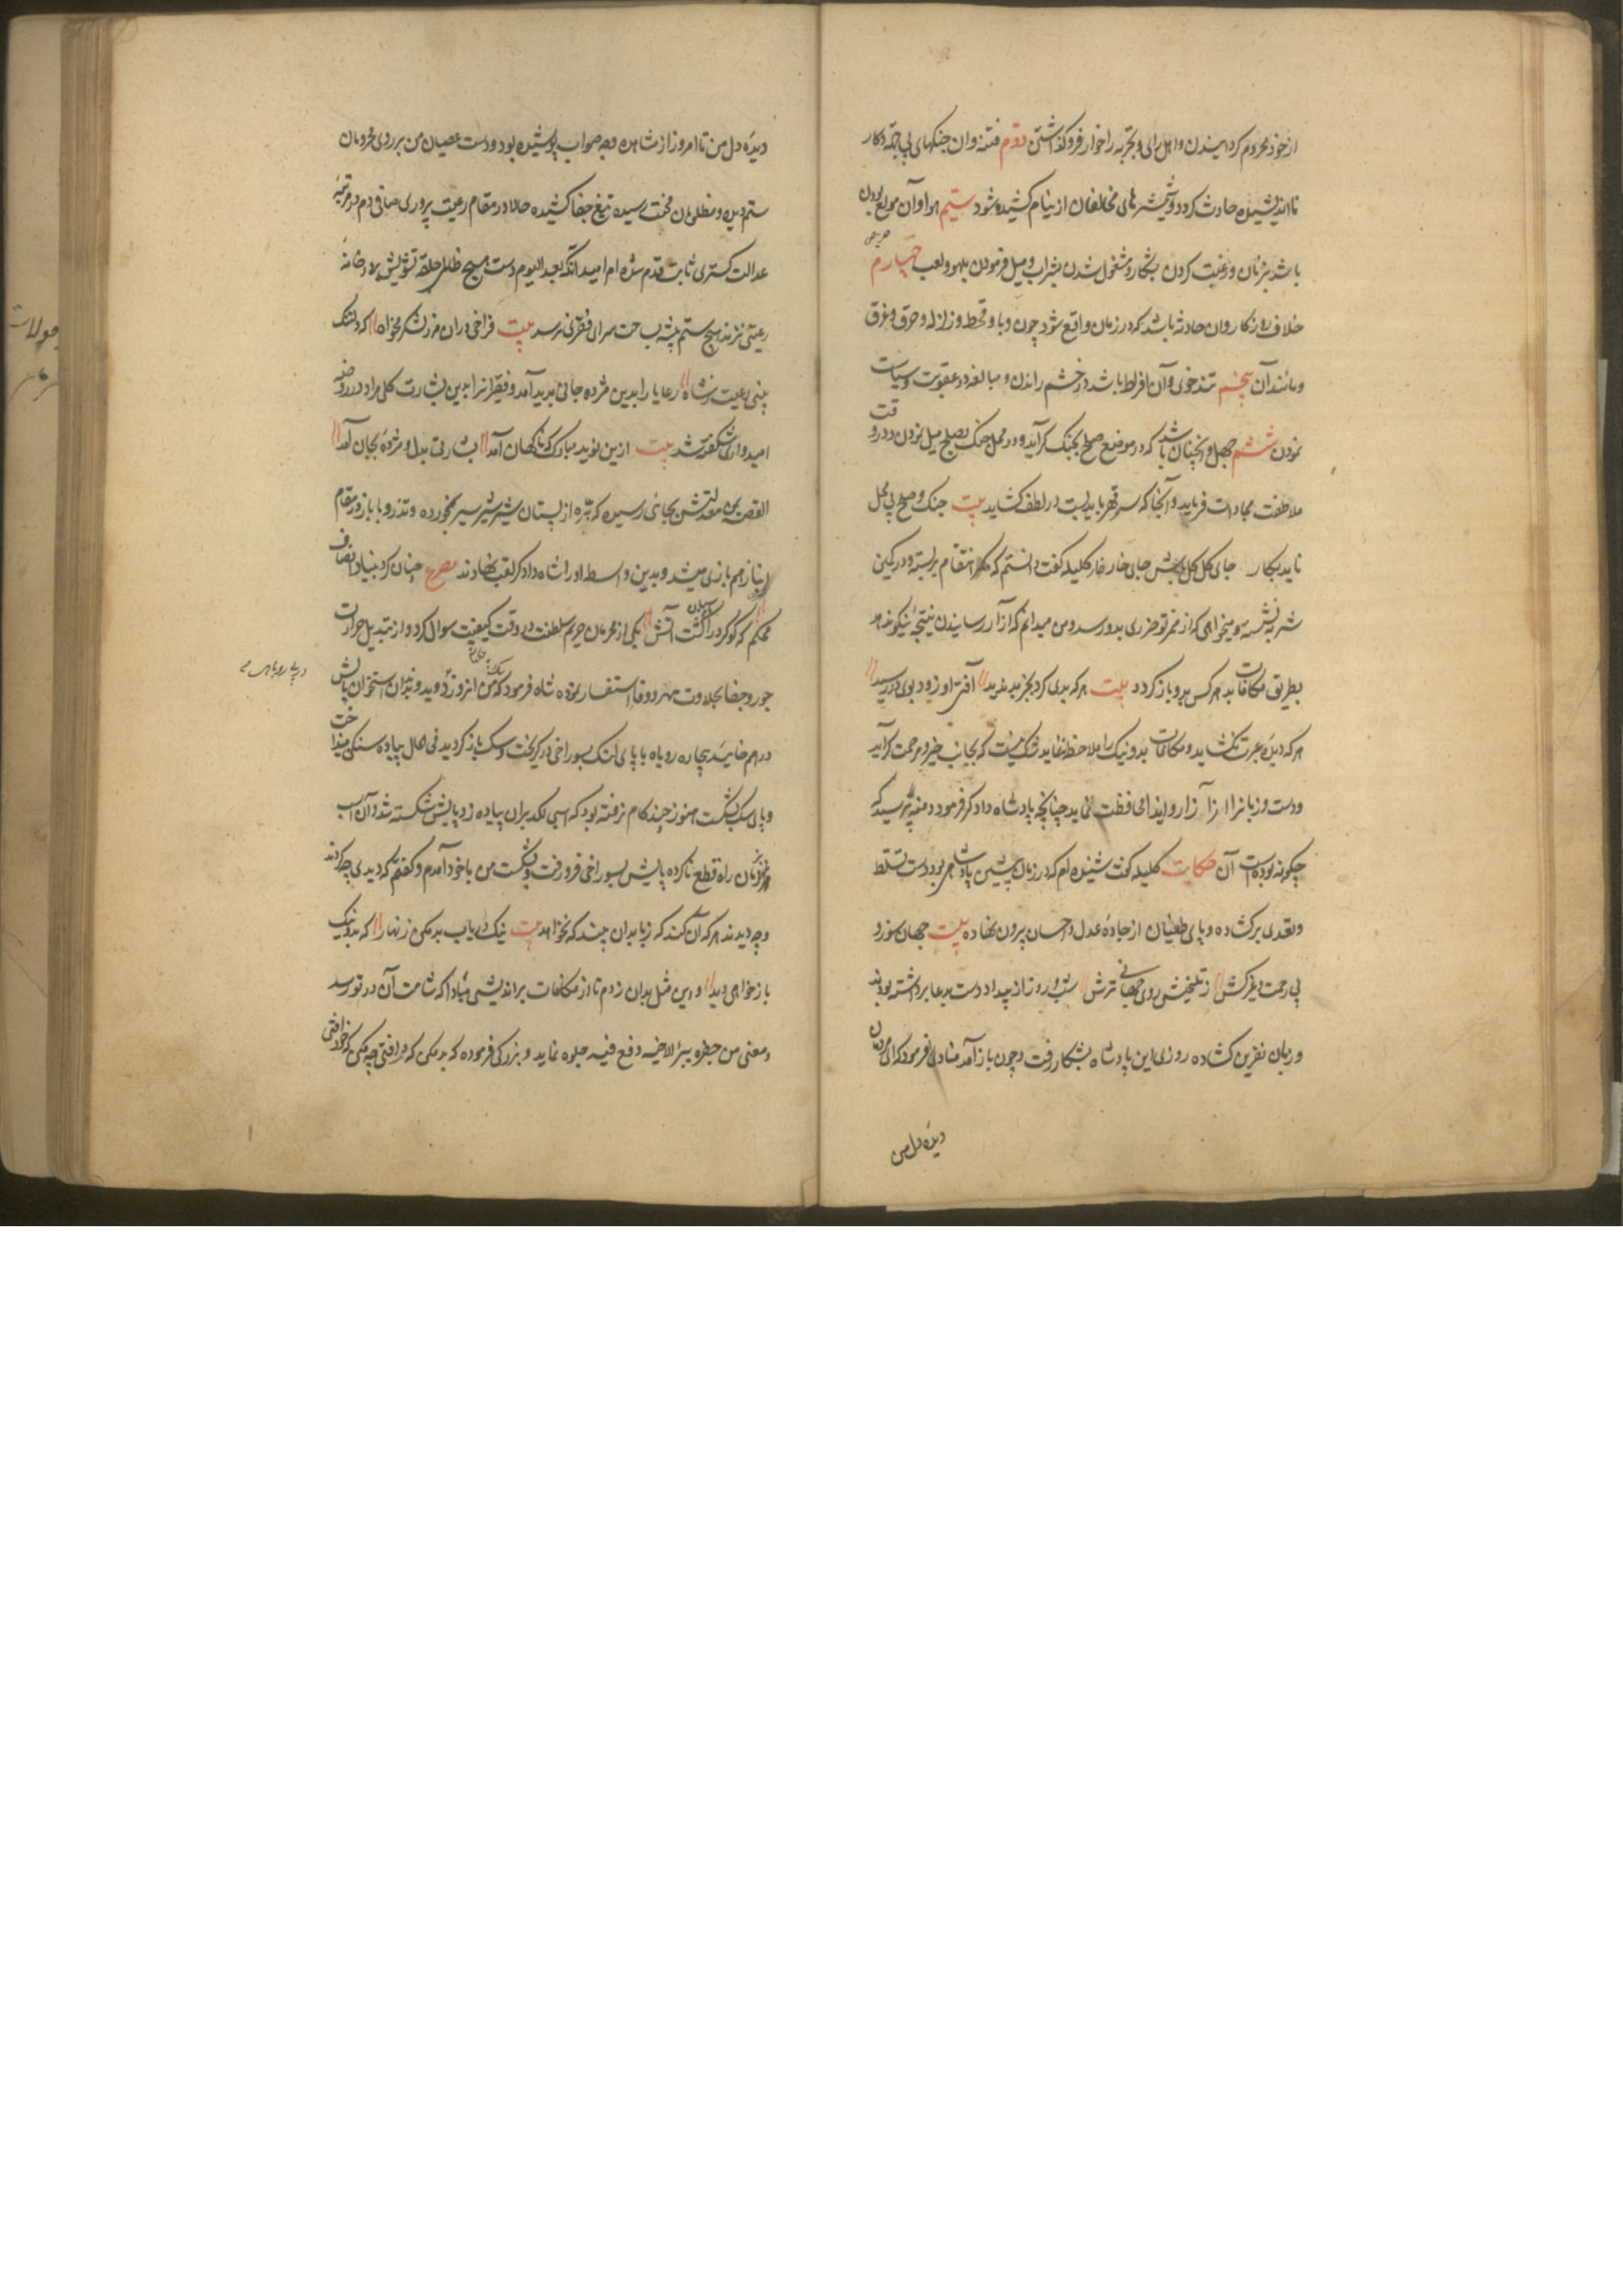 از خود محروم گردانیدن و اهل رای و تجربه را خوار فرو گذاشتن دوم فتنه و آن جنگهای بی جهة و کار
نااندیشیده حادث گردد و شمشیرهای مخالفان از نیام کشیده شود سیم هوا و آن مولع بودن
حریص
باشد بزنان و رغبت کردن بشکار و مشغول شدن بشراب و میل فرمودن بلهو و لعب چهارم
خلاف روزکار و آن حادثه باشد که در زمان واقع شود چون وبا و قحط و زلزله و حرق و غرق
و مانند آن پنجم تندخوی و آن افراط باشد در خشم راندن و مبالغه در عقوبت و سیاست
نمودن ششم جهل و آنچنان باشد که در موضع صلح بجنگ گراید و در محل جنگ بصلح میل نمودن و در وقت
ملاطفت مجادلت فرماید و آنجا که سد قهر باید بست در لطف کشاید بیت جنگ و صلح بی محل
ناید بکار جای گل گل باش جای خار خار کلیله گفت دانستم که کمر انتقام بر بسته و در کمین
شر به نشسته و میخواهی که از ممر تو ضرری بدو رسد و من میدانم که آزار رسانیدن نتیجهٔ نیکو ندهد
بطریق مکافات بد هر کس بدو باز گردد بیت هر که بدی کرد بجز بد ندید // آفت او زود بوی در رسید //
هر که دیدهٔ عبرت بگشاید و مکافات بد و نیک را ملاحظه نماید شک نیست که بجانب خیر و مرحمت گراید
و دست و زبانرا از آزار و ایذا محافظت نماید چنانچه پادشاه دادگر فرمود دمنه پرسید که
چگونه بوده است آن حکایت کلیله گفت شنیده ام که در زمان پیشین پادشاهی بود دست تسلط
و تعدی بر گشاده و پای طغیان از جادهٔ عدل و احسان بیرون نهاده بیت جهان سوز و
بی رحمت و خیره کش // ز تلخیش روی جهانی ترش // شب و روز از بیداد او دست بدعا برداشته بودند
و زبان نفرین گشاده روزی این پادشاه بشکار رفت و چون باز آمد منادی فرمود که ای مردمان
دیدهٔ دل من
دیدهٔ دل من تا امروز از مشاهدهٔ وجه صواب پوشیده بود و دست عصیان من بر روی محرومان
ستم دیده و مظلومان محنت رسیده تیغ جفا کشیده حالا در مقام رعیت پروری صافی دم و در مرتبهٔ
عدالت گستری ثابت قدم شده ام امید آنکه بعد الیوم دست هیچ ظالم حلقهٔ تشویش بر در خانهٔ
رعیتی نزند و هیچ ستم پیشه بساحت سرای فقری نرسد بیت فراخی در آن مرز و کشور مخواه // که دلتنگ
بینی رعیت ز شاه // رعایا را بدین مژده جانی پدید آمد و فقرا نرا بدین بشارت گل مراد در روضهٔ
امیدواری شگفته شد بیت ازین نوید مبارک که ناگهان آمد // بشارتی بدل و مژدهٔ بجان آمد //
القصه یمن معدلتش بجائی رسید که بره از پستان شیر شیر سیر بخورده و تذرو با باز در مقام
انباز هم بازی میشد و بدین واسطه او را شاه دادگر لقب نهادند مصرع چنان کرد بنیاد انصاف
محکم که گوگرد را گشت آتش نگهبان // یکی از محرمان حریم سلطنت در وقت کیفیت سوال کرد و از تبدیل حرارت
جور و جفا بحلاوت مهر و وفا استفسار نموده شاه فرمود که من امروز دوید و بدندان استخوان پایش
در پای روباهی
در هم خائید بیچاره روباه با پای لنگ بسوراخی در گریخت و سگ باز گردید فی الحال پیاده سنگی بینداخت
و پای سگ بشکست هنوز چند گام نرفته بود که اسبی لگد بر آن پیاده زد و پایش شکسته شد و آن اسب
نیز همزمان راه قطع ناکرده پایش بسوراخی فرو رفت و بشکست من با خود آمدم و گفتم که دیدی چه کردند
و چه دیدند هر که آن کند که نباید آن بیند که نخواهد بیت نیک دریاب بد مکن زنهار // که بد و نیک
باز خواهی دید // و این مثل بدان زدم تا از مکافات براندیشی مبادا که شامت آن در تو رسد
و معنی من حفر بئرا لاخیه وقع فیه جلوه نماید و بزرگی فرموده که بد مکن که در افتی چه مکن که خود افتی